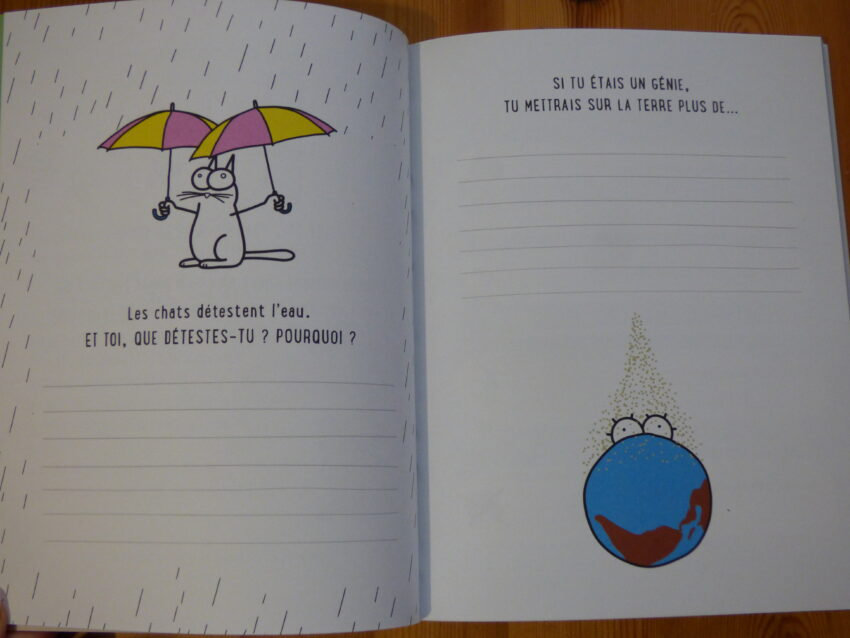 Les chats détestent l'eau.
ET TOI, QUE DÉTESTES-TU ? POURQUOI ?
SI TU ÉTAIS UN GÉNIE,
TU METTRAIS SUR LA TERRE PLUS DE...